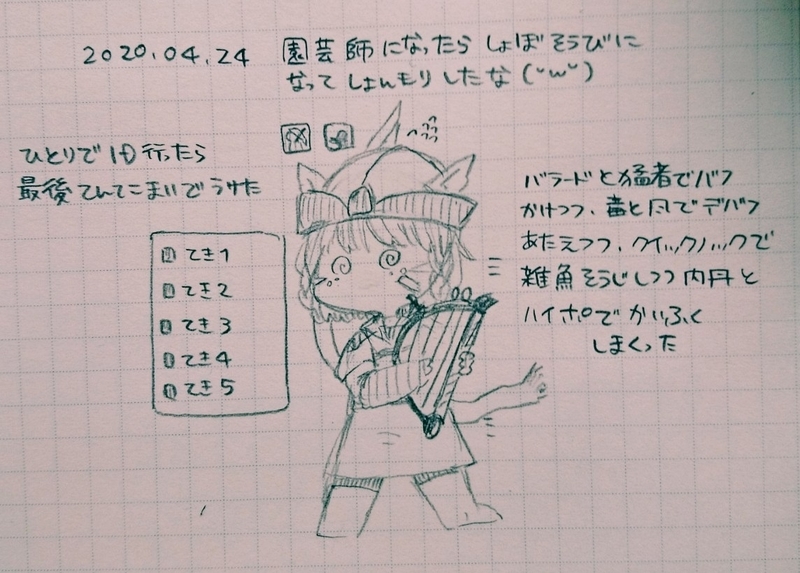 2020.04.24
園芸師になったら しょぼそうびに
なって しょんもりしたな (˘ω˘)
ひとりでID行ったら
最後てんてこまいでうけた
てき1
てき2
てき3
てき4
てき5
バラードと猛者でバフ
かけつつ、毒と風でデバフ
あたえつつ、クイックノックで
雑魚そうじしつつ内丹と
ハイポでかいふく
しまくった